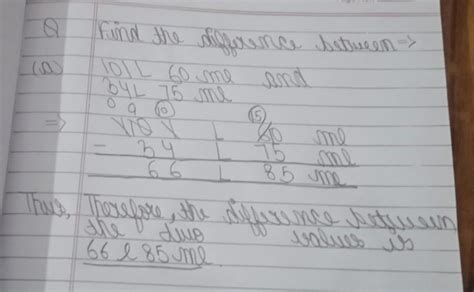 Q Find the difference between ⇒
(a) 101 L 60 ml and
34 L 75 ml
0 9 10 15
⇒ 101 L 60 ml
- 34 L 75 ml
66 L 85 ml
Thus, Therefore, the difference between
the two values is
66 l 85 ml.